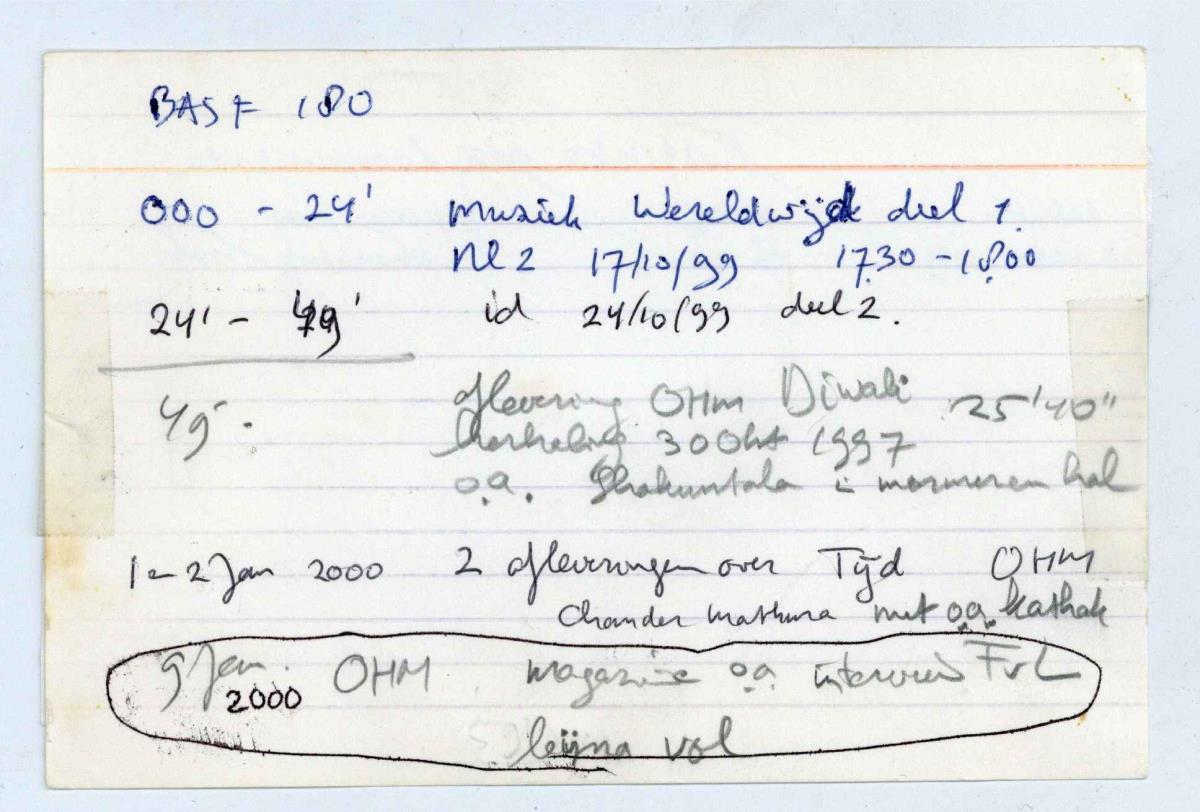 BASF 180
000 - 24' muziek Wereldwijd deel 1.
NL2 17/10/99 17.30 - 18.00
24' - 49' id 24/10/99 deel 2.
49'. aflevering OHM Diwali 25'40"
herhaling 30 Okt 1997
o.a. Shakuntala in marmeren hal
1-2 Jan 2000 2 afleveringen over Tijd OHM
Chander Mathura met o.a. kathak
9 Jan. 2000 OHM magazine o.a. interview FvL
bijna vol